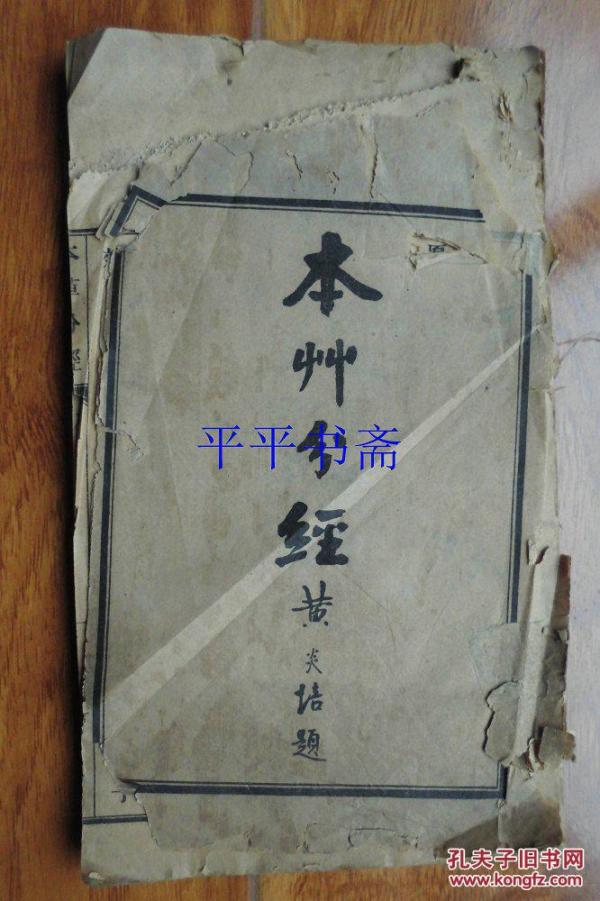 本艸分經
黄炎培題
平平书斋
本草分經
孔夫子旧书网
www.kongfz.com